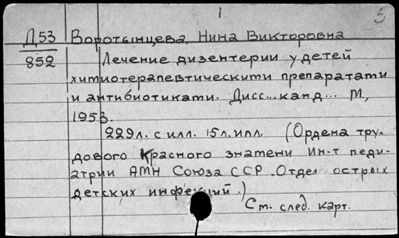 1
5
Д53 Воротынцева, Нина Викторовна
852 Лечение дизентерии у детей
химиотерапевтическими препаратами
и антибиотиками. Дисс... канд... М.,
1953.
229л. с илл. 15л. илл. (Ордена тру-
дового Красного знамени Ин-т педи-
атрии АМН Союза ССР. Отдел острых
детских инфекций.)
См. след. карт.